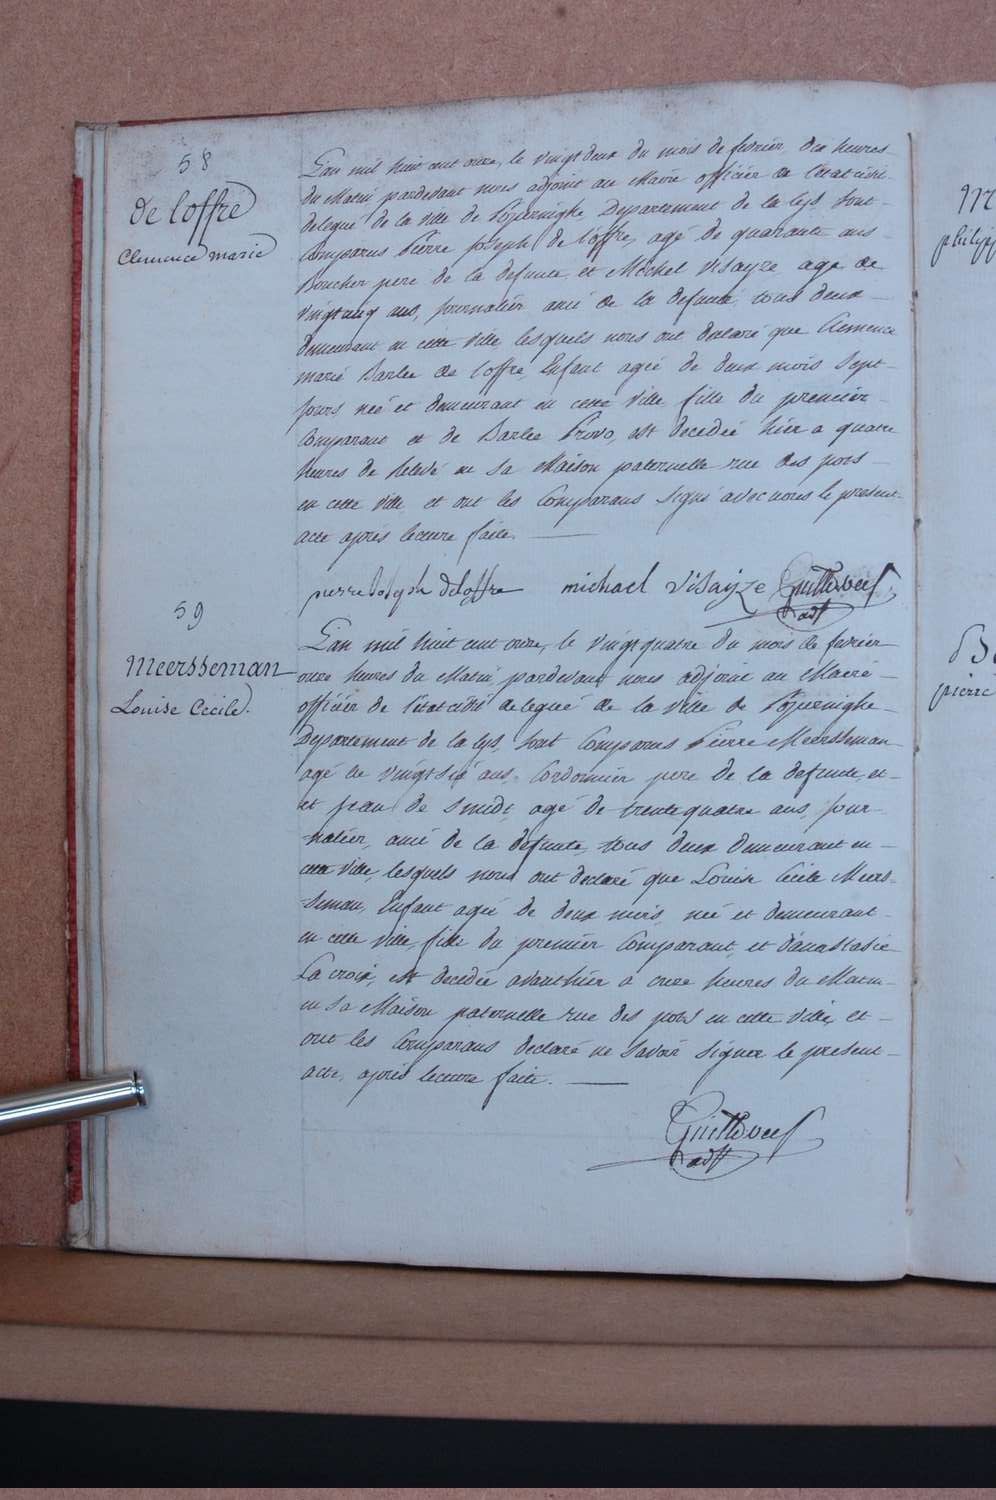 58
de loffre
Clemence marie
L'an mil huit cent onze, le vingt deux du mois de fevrier, dix heures
du Matin pardevant nous adjoint au Maire officier de l'état civil
delegué de la ville de Poperinghe Departement de la Lys, sont
Comparus Pierre Joseph de l'offre, agé de quarante ans
Boucher pere de la defunte et Michel Visayze agé de
vingt cinq ans, journalier amié de la defunte, tous deux
demeurant en cette ville lesquels nous ont declaré que Clemence
marie Barbe de l'offre, Enfant agée de deux mois sept
jours née et demeurant en cette ville, fille du premier
Comparant et de Barbe Provo, est decedée hier a quatre
heures de relevé en sa Maison paternelle rue des pots
en cette ville et ont les Comparans signé avec nous le present
acte après lecture faite.
pierre Joseph deloffre michael Visaijze
adjt
59
Meersseman
Louise Cecile.
L'an mil huit cent onze, le vingt quatre du mois de fevrier
onze heures du Matin, pardevant nous adjoint au Maire
officier de l'état civil delegué de la ville de Poperinghe
Departement de la Lys, sont Comparus Pierre Meersseman
agé de vingt six ans, Cordonnier pere de la defunte, et
et Jean de Smidt, agé de trente quatre ans, jour-
nalier, amié de la defunte, tous deux demeurant en
cette ville, lesquels nous ont declaré que Louise Cecile Meers-
seman, Enfant agée de deux mois, née et demeurant
en cette ville, fille du premier Comparant, et d'anastasie
La croix, est decedée avanthier a onze heures du Matin
en sa Maison paternelle rue des pots en cette ville, et
ont les Comparans declaré ne savoir signer le present
acte, après lecture faite.
adjt
M
philipp
pierre